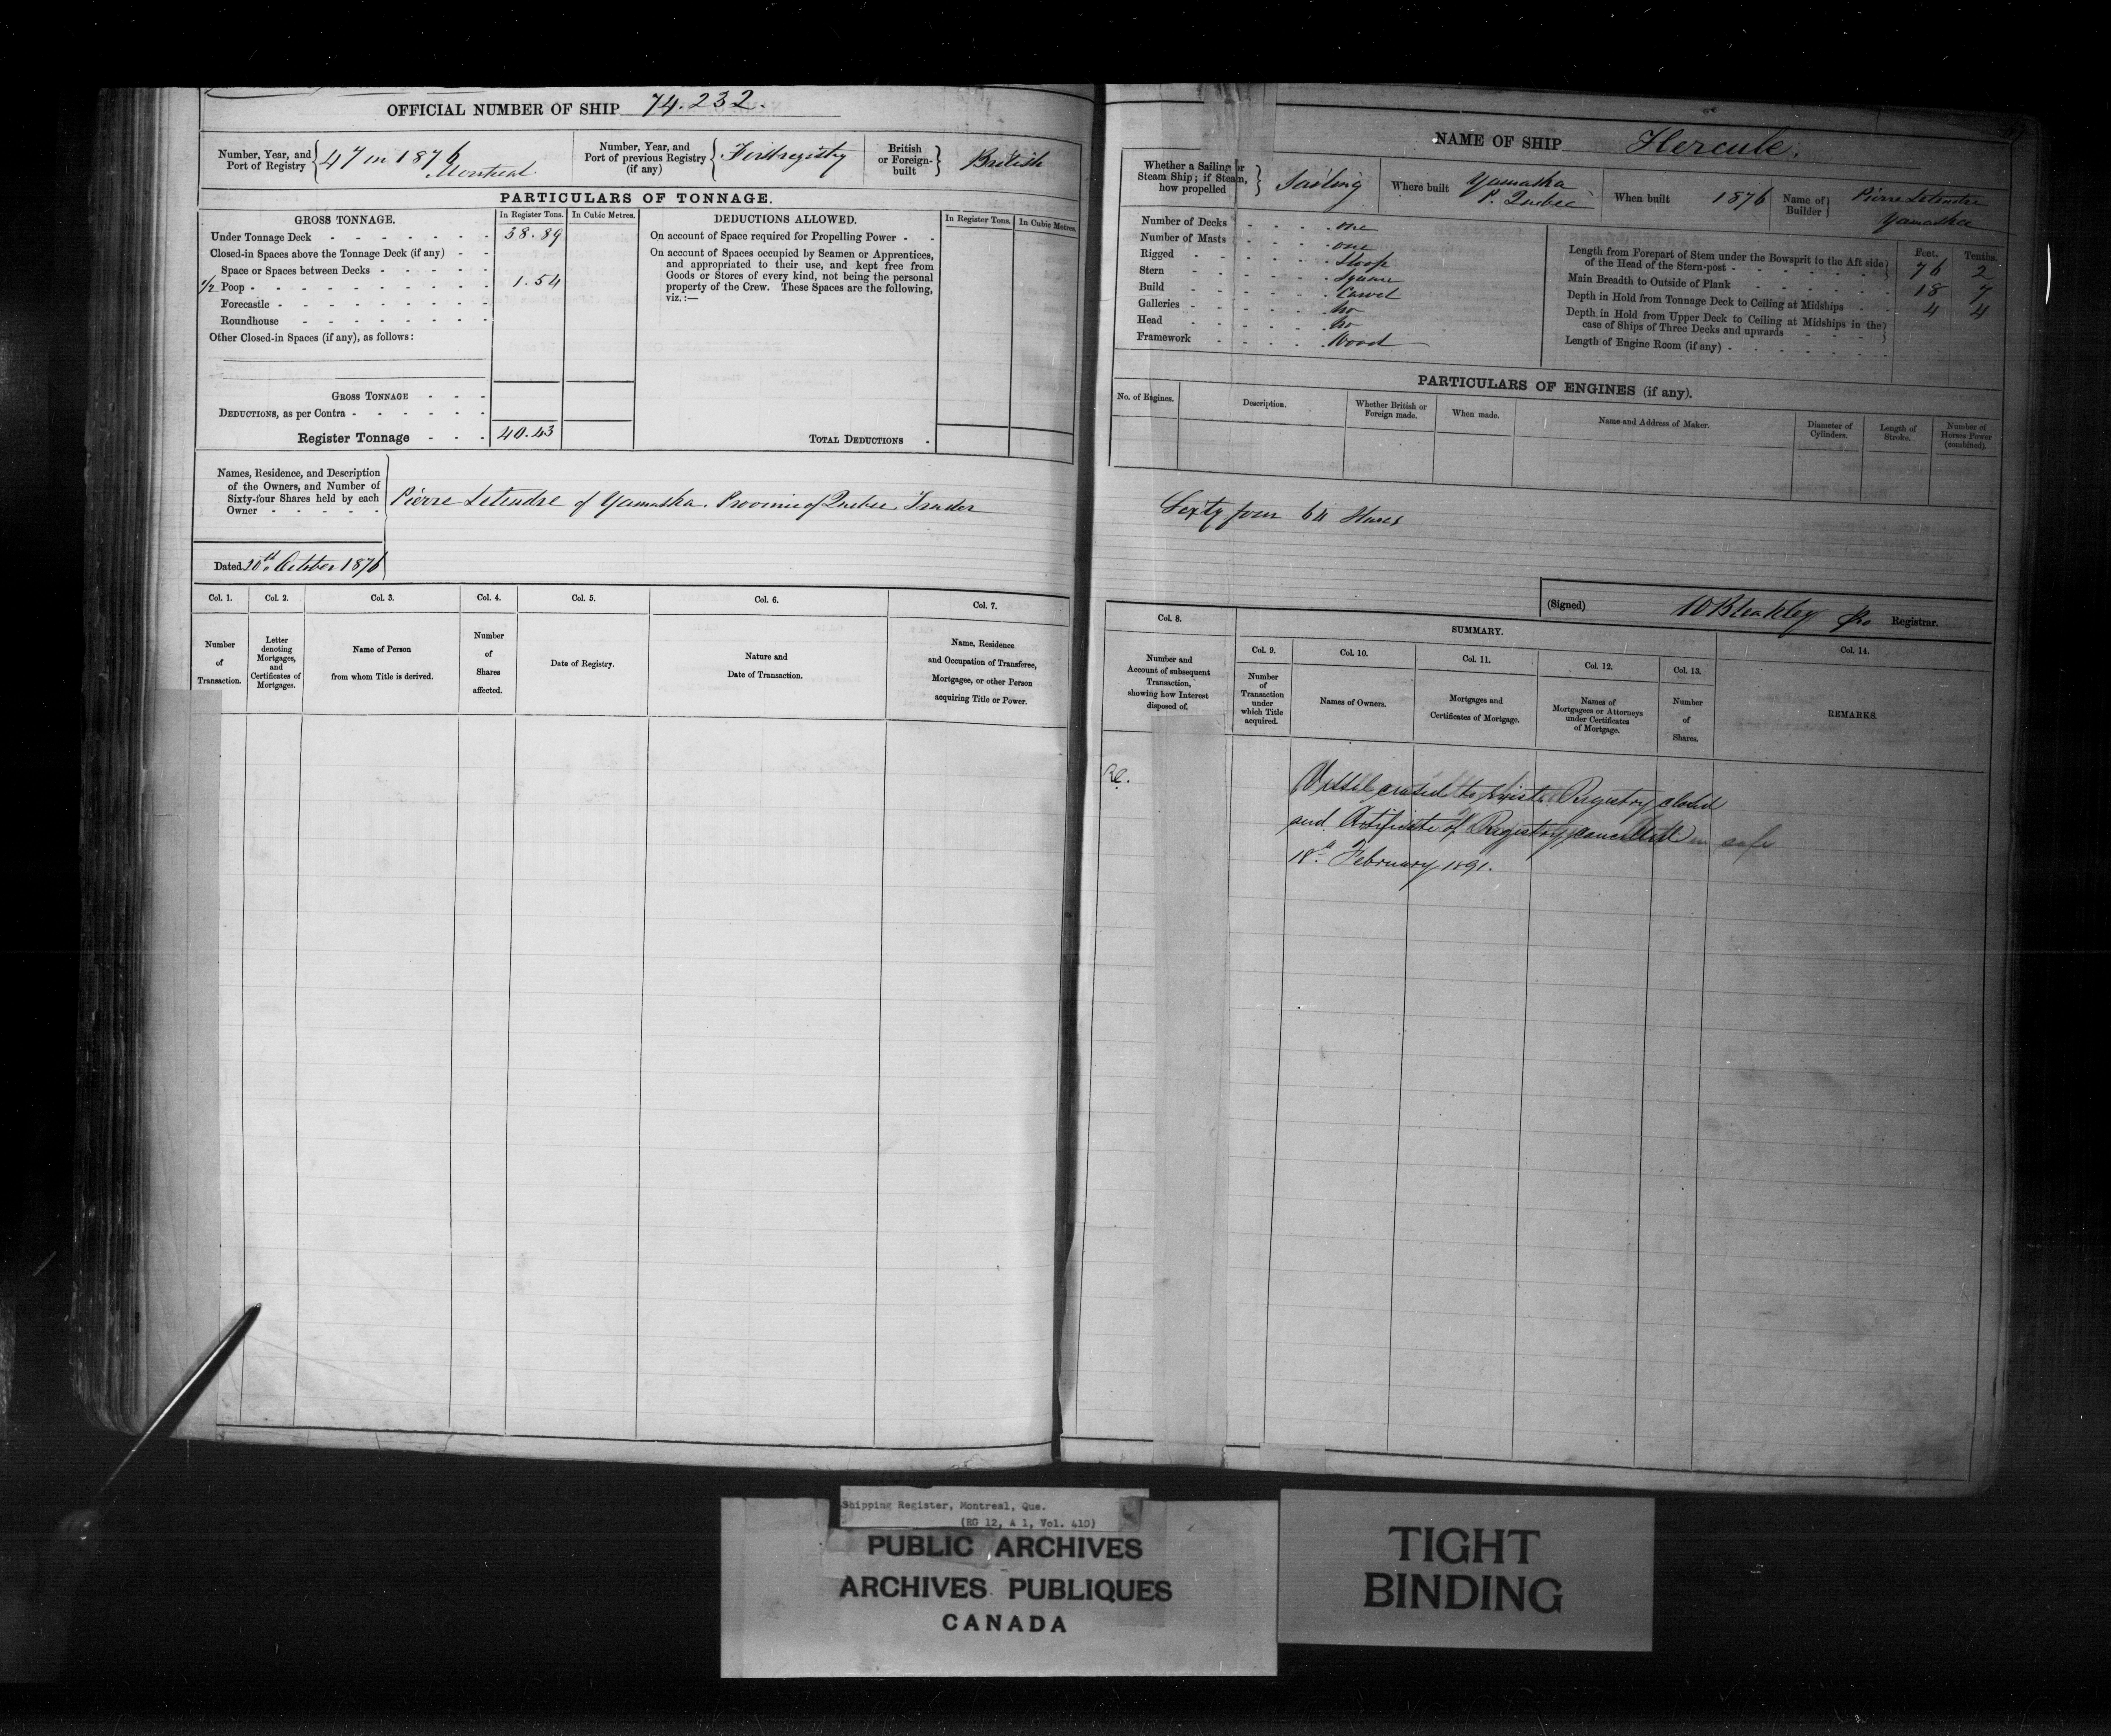 OFFICIAL NUMBER OF SHIP 74.232.
Number, Year, and Port of Registry 47 in 1876 Montreal
Number, Year, and Port of previous Registry (if any) First registry
British or Foreign-built British
PARTICULARS OF TONNAGE.
GROSS TONNAGE.
In Register Tons.
In Cubic Metres.
Under Tonnage Deck 38.89
Closed-in Spaces above the Tonnage Deck (if any)
Space or Spaces between Decks
1/2 Poop 1.54
Forecastle
Roundhouse
Other Closed-in Spaces (if any), as follows:
GROSS TONNAGE
DEDUCTIONS, as per Contra
Register Tonnage 40.43
DEDUCTIONS ALLOWED.
In Register Tons.
In Cubic Metres.
On account of Space required for Propelling Power
On account of Spaces occupied by Seamen or Apprentices,
and appropriated to their use, and kept free from
Goods or Stores of every kind, not being the personal
property of the Crew. These Spaces are the following,
viz.:—
TOTAL DEDUCTIONS
Names, Residence, and Description
of the Owners, and Number of
Sixty-four Shares held by each
Owner
Pierre Letendre of Yamaska. Province of Quebec. Trader
Dated 20th October 1876
Col. 1.
Number of Transaction.
Col. 2.
Letter denoting Mortgages, and Certificates of Mortgages.
Col. 3.
Name of Person from whom Title is derived.
Col. 4.
Number of Shares affected.
Col. 5.
Date of Registry.
Col. 6.
Nature and Date of Transaction.
Col. 7.
Name, Residence and Occupation of Transferee, Mortgagee, or other Person acquiring Title or Power.
NAME OF SHIP Hercule.
Whether a Sailing or Steam Ship; if Steam, how propelled Sailing
Where built Yamaska P. Quebec
When built 1876
Name of Builder Pierre Letendre Yamaska
Number of Decks one
Number of Masts one
Rigged Sloop
Stern Square
Build Carvel
Galleries No
Head No
Framework Wood
Feet. Tenths.
Length from Forepart of Stem under the Bowsprit to the Aft side
of the Head of the Stern-post 76 2
Main Breadth to Outside of Plank 18 7
Depth in Hold from Tonnage Deck to Ceiling at Midships 4 4
Depth in Hold from Upper Deck to Ceiling at Midships in the
case of Ships of Three Decks and upwards
Length of Engine Room (if any)
PARTICULARS OF ENGINES (if any).
No. of Engines.
Description.
Whether British or Foreign made.
When made.
Name and Address of Maker.
Diameter of Cylinders.
Length of Stroke.
Number of Horses Power (combined).
Sixty four 64 Shares
(Signed) Bleakley Registrar.
Col. 8.
Number and Account of subsequent Transaction, showing how Interest disposed of.
SUMMARY.
Col. 9.
Number of Transaction under which Title acquired.
Col. 10.
Names of Owners.
Col. 11.
Mortgages and Certificates of Mortgage.
Col. 12.
Names of Mortgagees or Attorneys under Certificates of Mortgage.
Col. 13.
Number of Shares.
Col. 14.
REMARKS.
Vessel ceased to exist. Registry closed
and Certificate of Registry cancelled in safe
18th February 1891.
Shipping Register, Montreal, Que.
(RG 12, A 1, Vol. 410)
PUBLIC ARCHIVES
ARCHIVES PUBLIQUES
CANADA
TIGHT
BINDING